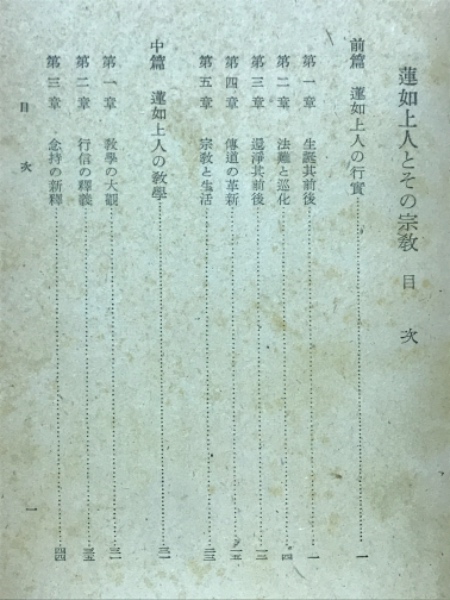 蓮如上人とその宗教 目次
前篇 蓮如上人の行實……一
第一章 生誕其前後……一
第二章 法難と巡化……四
第三章 還淨其前後……一二
第四章 傳道の革新……一五
第五章 宗教と生活……二三
中篇 蓮如上人の敎學……三一
第一章 敎學の大觀……三一
第二章 行信の釋義……三五
第三章 念持の新釋……四四
目次 一